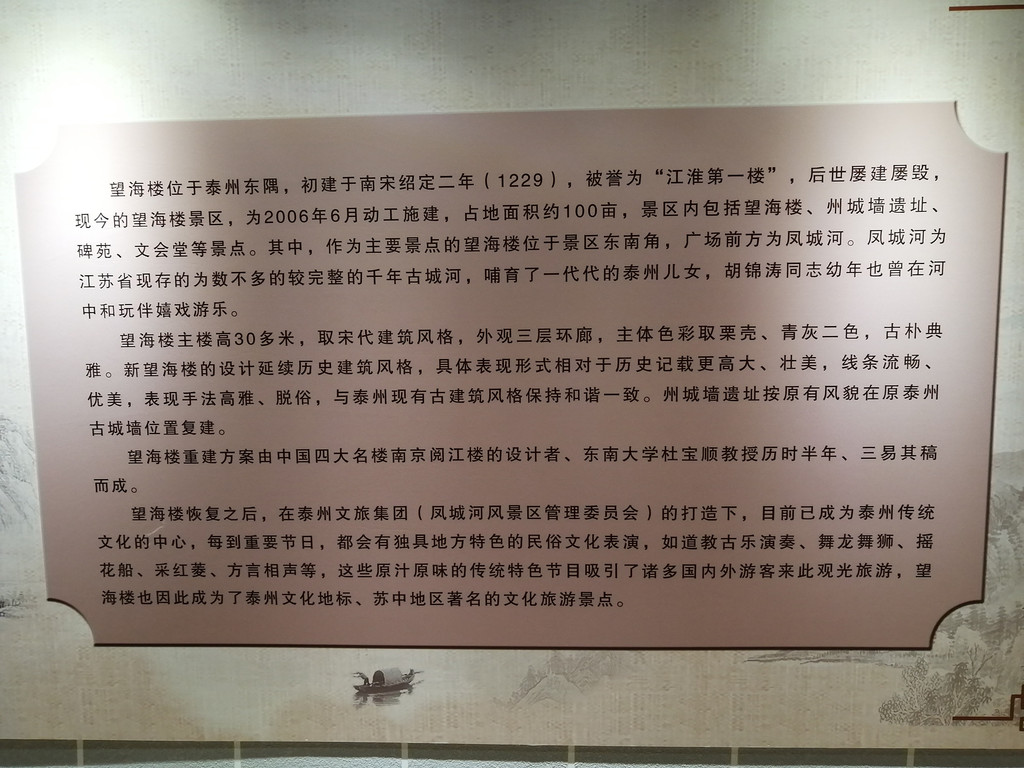 望海楼位于泰州东隅，初建于南宋绍定二年（1229），被誉为“江淮第一楼”，后世屡建屡毁，
现今的望海楼景区，为2006年6月动工施建，占地面积约100亩，景区内包括望海楼、州城墙遗址、
碑苑、文会堂等景点。其中，作为主要景点的望海楼位于景区东南角，广场前方为凤城河。凤城河为
江苏省现存的为数不多的较完整的千年古城河，哺育了一代代的泰州儿女，胡锦涛同志幼年也曾在河
中和玩伴嬉戏游乐。
望海楼主楼高30多米，取宋代建筑风格，外观三层环廊，主体色彩取栗壳、青灰二色，古朴典
雅。新望海楼的设计延续历史建筑风格，具体表现形式相对于历史记载更高大、壮美，线条流畅、
优美，表现手法高雅、脱俗，与泰州现有古建筑风格保持和谐一致。州城墙遗址按原有风貌在原泰州
古城墙位置复建。
望海楼重建方案由中国四大名楼南京阅江楼的设计者、东南大学杜宝顺教授历时半年、三易其稿
而成。
望海楼恢复之后，在泰州文旅集团（凤城河风景区管理委员会）的打造下，目前已成为泰州传统
文化的中心，每到重要节日，都会有独具地方特色的民俗文化表演，如道教古乐演奏、舞龙舞狮、摇
花船、采红菱、方言相声等，这些原汁原味的传统特色节目吸引了诸多国内外游客来此观光旅游，望
海楼也因此成为了泰州文化地标、苏中地区著名的文化旅游景点。